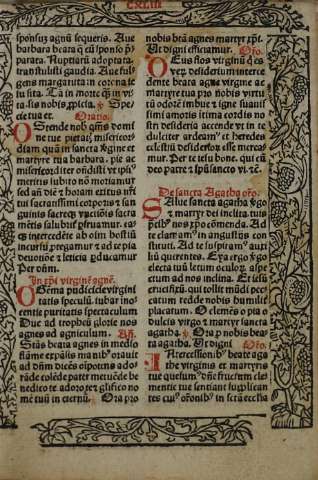 CXLIII
sponsuȝ agnũ sequeris. Aue
barbara beata q̃ cũ sponso p̃
parata. Nuptiarũ adoptata
transtulisti gaudia. Aue ful-
gens margarita in corona ie
su sita. Tã in morte q̃ȝ in vi
ta sis nobis ꝓpicia. Spe
cie tua et. Oratio.
Ostende nobis q̃s domi
ne tue pietatȝ misericor
diam quã in sancta virgine et
martyre tua barbara. pie ac
misericorditer ondisti vt ipsiꝰ
meritis subito nõ moriamur
sed añ diẽ ⁊ horam exitus nr̃i
tui sacratissimi corporis ⁊ san
guinis sacreqȝ vnctiõis sacra
mẽtis salubriƚ ꝑfruamur. eius
qȝ intercedẽte ab oĩm hostiũ
incursu ꝓtegamur ⁊ ad copia
deuotiõe ⁊ leticia ꝑducamur
Per dñm.
In xp̃i virginẽ agnẽ.
O gema pudicicie virgini
tatis speculũ. iubar ino-
centie puritatis spectaculum
Duc ad trophei glorie nos
agnes ad agniculum. Añ.
Stãs beata agnes in medio
flãme expãsis manibꝰ orauit
ad dñm dicẽs oĩpotens ado-
rãde colẽde pater metuẽde be
nedico te ⁊ adoro teȝ glifico no
mẽ tuũ in eternũ. Ora pro
nobis bt̃ã agnes martyr xp̃i.
Ut digni efficiamur. Orõ.
Deus flos virginũ q̃ es
ver, desiderium interce
dente beata agne virgine ac
martyre tua pro nobis virtu
tũ odorẽ imbue ⁊ igne suauis
simi amoris itima cordis no
stri desideria accende vt in te
dulciter ardeamꝰ et heredes
celestiũ desideriorũ esse merea-
mur. Per te iesu bone. qui cũ
deo patre ⁊ spũsancto vi.⁊c̃.
De sancta Agatha orõ.
Salue sancta agatha virgo
⁊ martyr dei inclita. tuis
p̃cibꝰ nos xp̃o cõmenda. Ad
te clamamꝰ in angustijs con
stituti. Ad te suspiramꝰ auxi
liũ querentes. Exa ergo virgo
electa tuũ letum oculorũ aspe
ctum ad nos inclina. Et iesũ
crucifixũ qui tollit mũdi pec
catum redde nobis humili-
placatum. O clemẽs o pia o
dulcis virgo ⁊ martyr sancta
agatha. Ora p̱ nobis bea-
ta agatha. Ut digni Orõ.
Intercessionibꝰ beate aga
the virginis et martyris
tue quesumꝰ dñe fructum cle
mentie tue sentiant supplican
tes cuiꝰ orõnibꝰ in scã ecclesia